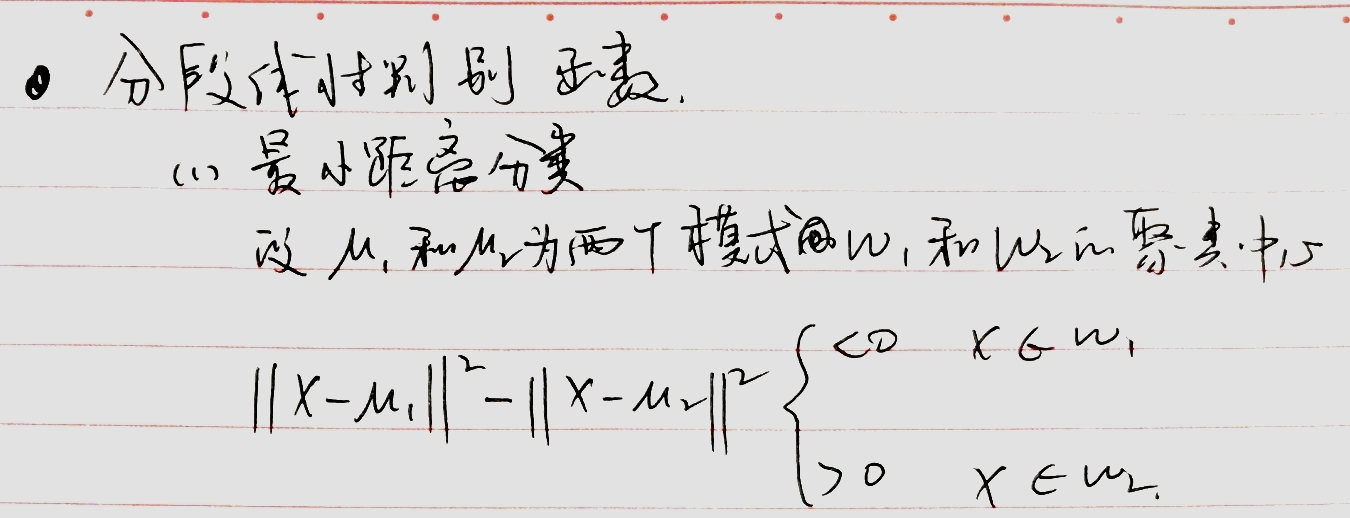 分段线性判别函数.
(1) 最小距离分类
设 μ₁ 和 μ₂ 为两个模式 w₁ 和 w₂ 的聚类中心
||X-μ₁||² - ||X-μ₂||² { <0 X ∈ w₁
>0 X ∈ w₂.